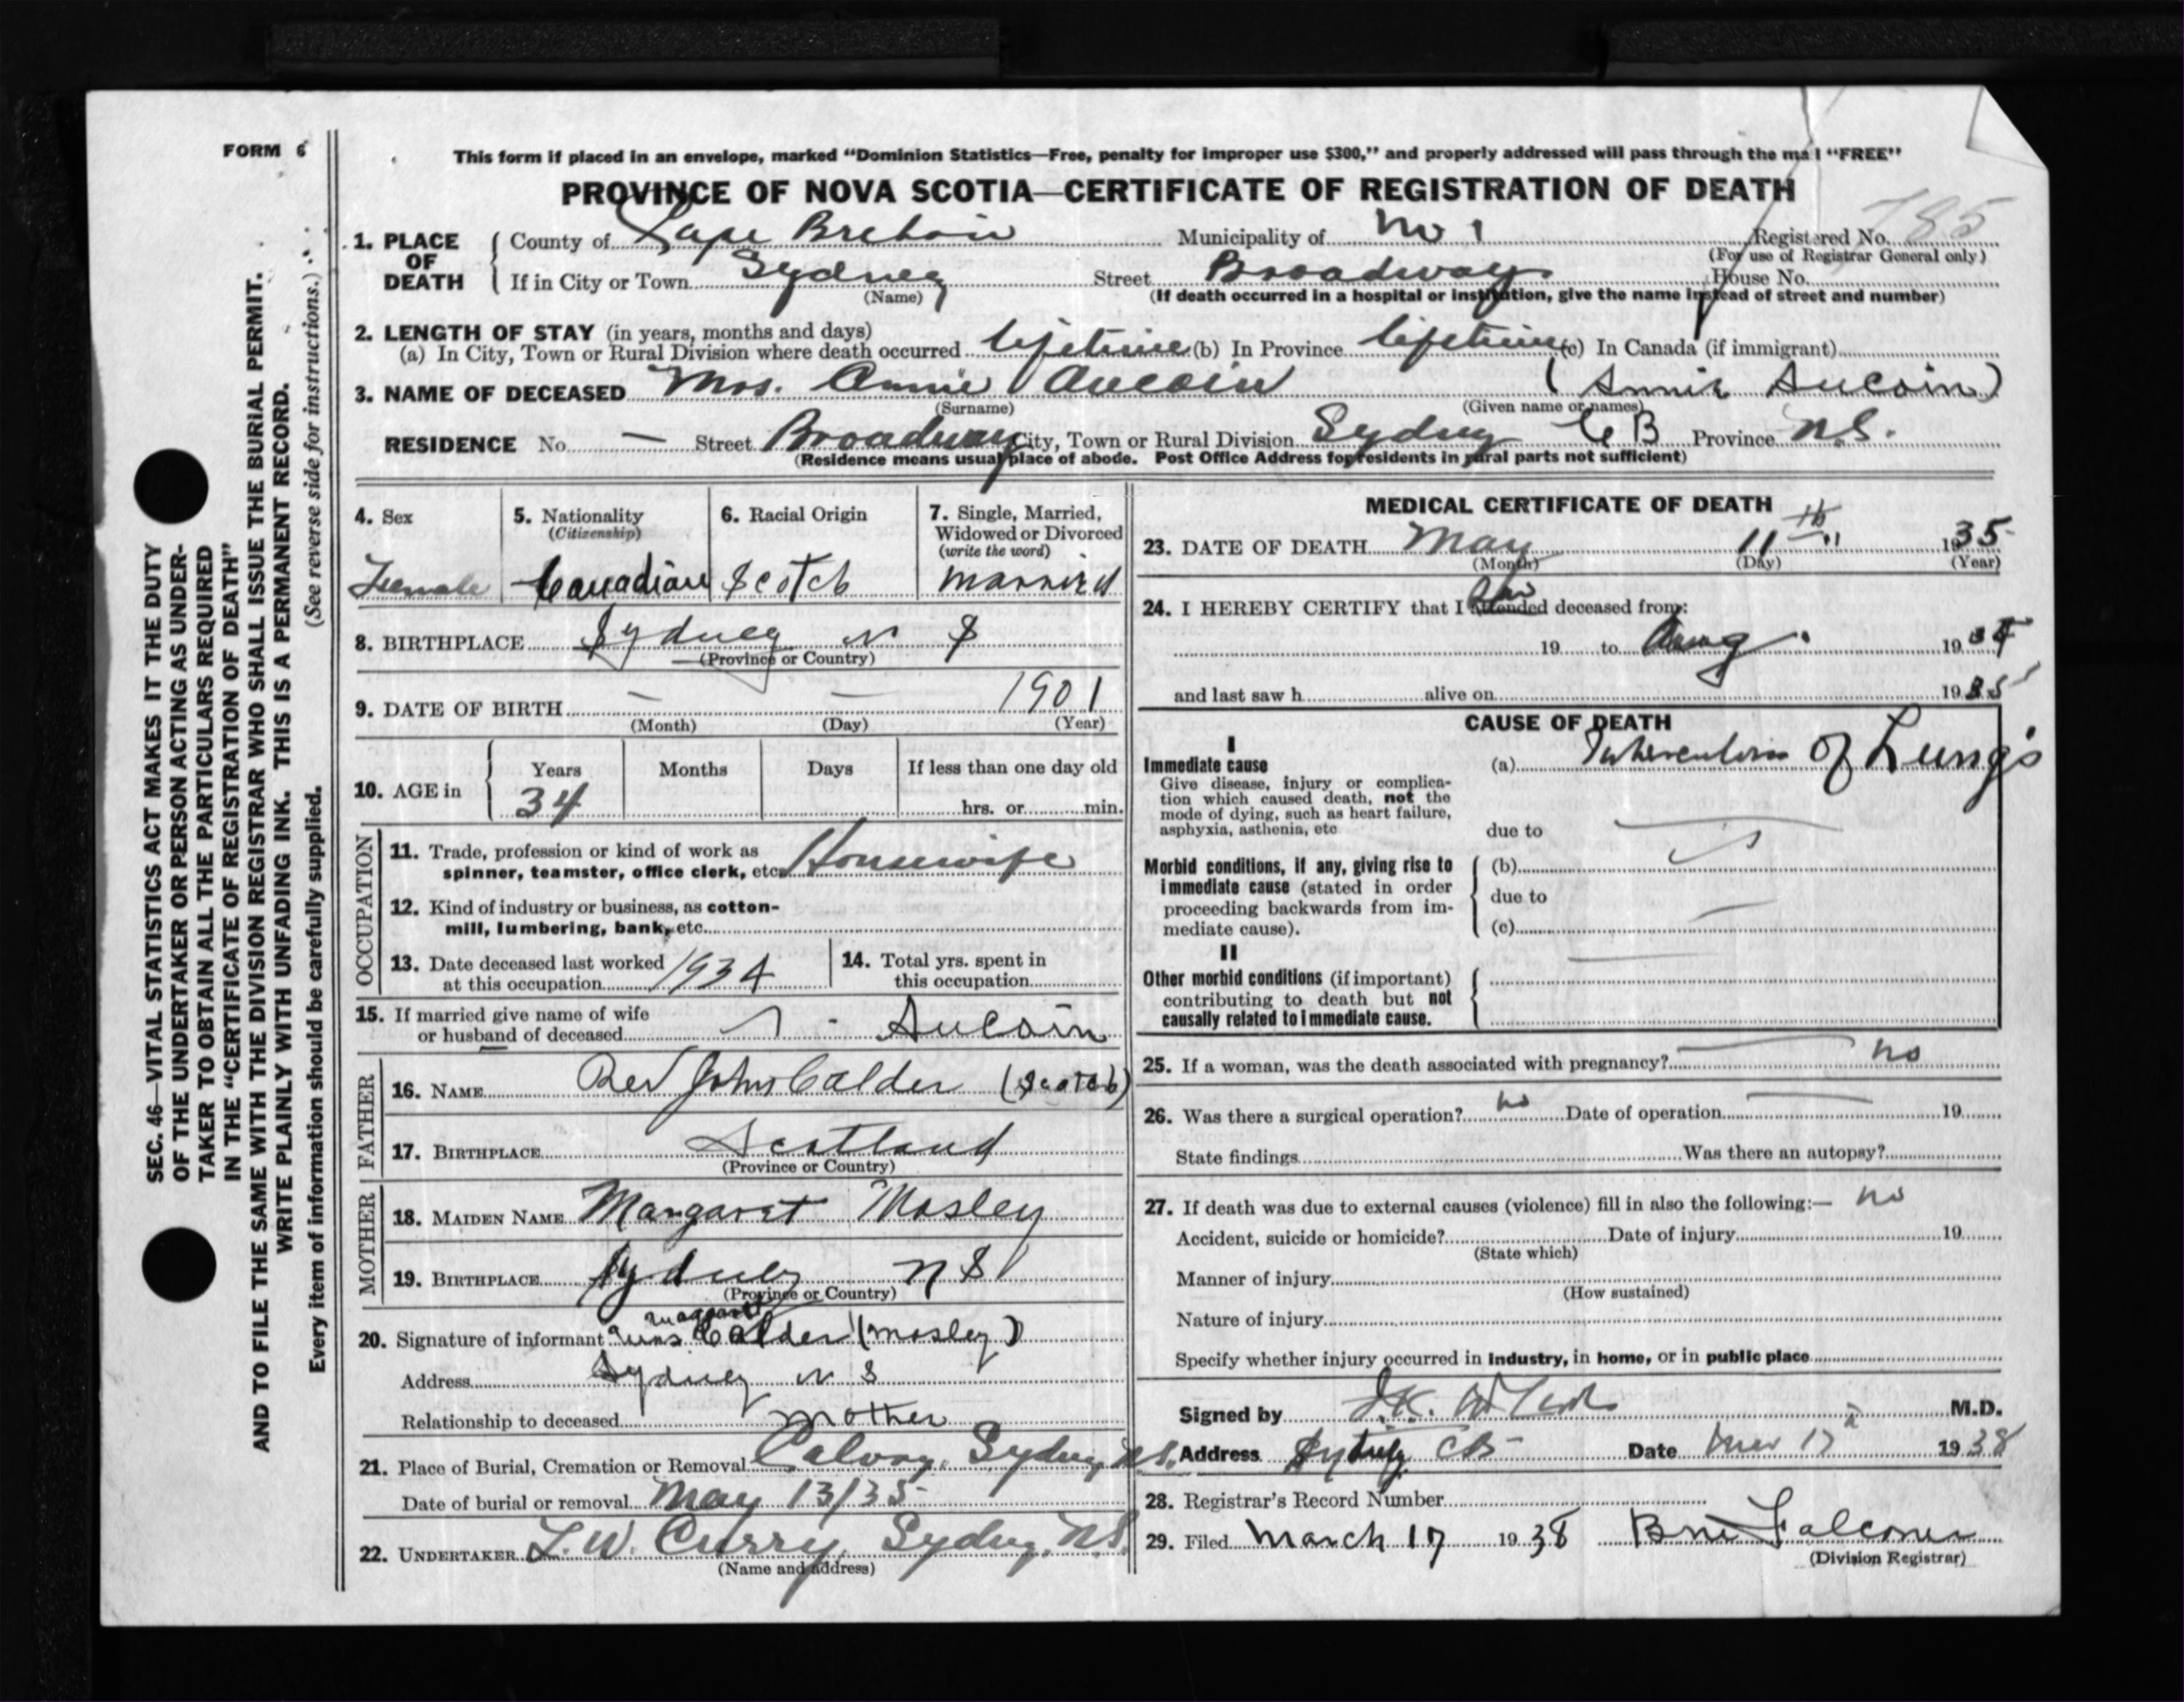 FORM 6
This form if placed in an envelope, marked “Dominion Statistics—Free, penalty for improper use $300,” and properly addressed will pass through the ma l “FREE”
PROVINCE OF NOVA SCOTIA—CERTIFICATE OF REGISTRATION OF DEATH
1. PLACE OF DEATH
County of Cape Breton Municipality of No 1 Registered No. 785
(For use of Registrar General only)
If in City or Town Sydney Street Broadway House No.
(Name) (If death occurred in a hospital or institution, give the name instead of street and number)
2. LENGTH OF STAY (in years, months and days)
(a) In City, Town or Rural Division where death occurred lifetime (b) In Province lifetime (c) In Canada (if immigrant)
3. NAME OF DECEASED Mrs. Annie Aucoin (Annie Aucoin)
(Surname) (Given name or names)
RESIDENCE No. — Street Broadway City, Town or Rural Division Sydney CB Province N.S.
(Residence means usual place of abode. Post Office Address for residents in rural parts not sufficient)
4. Sex
Female
5. Nationality
(Citizenship)
Canadian
6. Racial Origin
Scotch
7. Single, Married,
Widowed or Divorced
(write the word)
married
8. BIRTHPLACE Sydney N S
(Province or Country)
9. DATE OF BIRTH — — 1901
(Month) (Day) (Year)
10. AGE in
Years Months Days If less than one day old
34 hrs. or min.
OCCUPATION
11. Trade, profession or kind of work as
spinner, teamster, office clerk, etc. Housewife
12. Kind of industry or business, as cotton-
mill, lumbering, bank, etc.
13. Date deceased last worked
at this occupation 1934
14. Total yrs. spent in
this occupation
15. If married give name of wife
or husband of deceased Aucoin
FATHER
16. NAME Rev John Calder (Scotch)
17. BIRTHPLACE Scotland
(Province or Country)
MOTHER
18. MAIDEN NAME Margaret Mosley
19. BIRTHPLACE Sydney N S
(Province or Country)
Margaret
20. Signature of informant Mrs Calder (Mosley)
Address Sydney N S
Relationship to deceased mother
21. Place of Burial, Cremation or Removal Calvary, Sydney, N.S.
Date of burial or removal May 13/35
22. UNDERTAKER L.W. Curry, Sydney, N.S.
(Name and address)
MEDICAL CERTIFICATE OF DEATH
23. DATE OF DEATH May 11th 1935
(Month) (Day) (Year)
24. I HEREBY CERTIFY that I attended deceased from:
19 to Aug. 1934
and last saw h alive on 1935
CAUSE OF DEATH
I
Immediate cause
Give disease, injury or complica-
tion which caused death, not the
mode of dying, such as heart failure,
asphyxia, asthenia, etc
(a) Tuberculosis of Lungs
due to
Morbid conditions, if any, giving rise to
immediate cause (stated in order
proceeding backwards from im-
mediate cause).
(b)
due to
(c)
II
Other morbid conditions (if important)
contributing to death but not
causally related to immediate cause.
25. If a woman, was the death associated with pregnancy? no
26. Was there a surgical operation? no Date of operation 19
State findings Was there an autopsy?
27. If death was due to external causes (violence) fill in also the following:— no
Accident, suicide or homicide? Date of injury 19
(State which)
Manner of injury
(How sustained)
Nature of injury
Specify whether injury occurred in industry, in home, or in public place
Signed by M.D.
Address Sydney CB Date 17 1938
28. Registrar's Record Number
29. Filed March 17 1938 Falconer
(Division Registrar)
SEC. 46—VITAL STATISTICS ACT MAKES IT THE DUTY
OF THE UNDERTAKER OR PERSON ACTING AS UNDER-
TAKER TO OBTAIN ALL THE PARTICULARS REQUIRED
IN THE “CERTIFICATE OF REGISTRATION OF DEATH”
AND TO FILE THE SAME WITH THE DIVISION REGISTRAR WHO SHALL ISSUE THE BURIAL PERMIT.
WRITE PLAINLY WITH UNFADING INK. THIS IS A PERMANENT RECORD.
Every item of information should be carefully supplied. (See reverse side for instructions.)